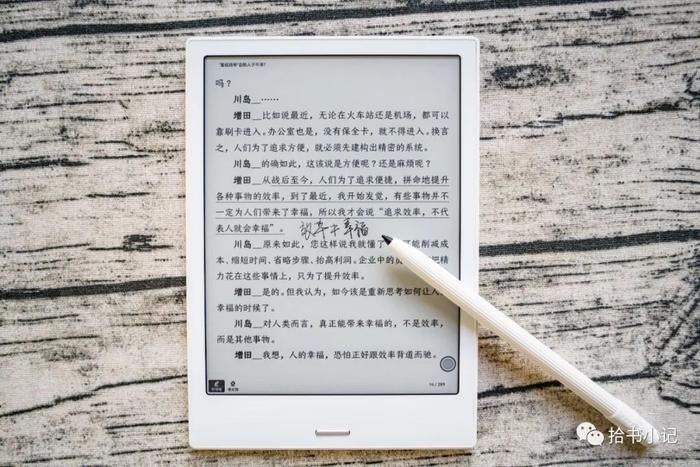 吗？
川岛__……
增田__比如说最近，无论在火车站还是机场，都可以
靠刷卡进入。办公室也是，没有保全卡，就不得进入。换言
之，人们为了追求方便，就必须先建构出精密的系统。
川岛__的确如此，这该说是方便呢？还是麻烦呢？
增田__从战后至今，人们为了追求便捷，拼命地提升
各种事物的效率，到了最近，我开始发觉，有些事物并不
一定为人们带来了幸福，所以我才会说“追求效率，不代
表人就会幸福”。 效率≠幸福
川岛__原来如此，您这样说我就懂了 可能削减成
本、缩短时间、省略步骤、抬高利润。企业中的 把精
力花在这些事情上，只为了提升效率。
增田__是的。但我认为，如今该是重新思考如何让人
幸福的时候了。
川岛__对人类而言，真正能带来幸福的，不是效率，
而是其他事物。
增田__我想，人的幸福，恐怕正好跟效率背道而驰。
16 / 289
拾书小记